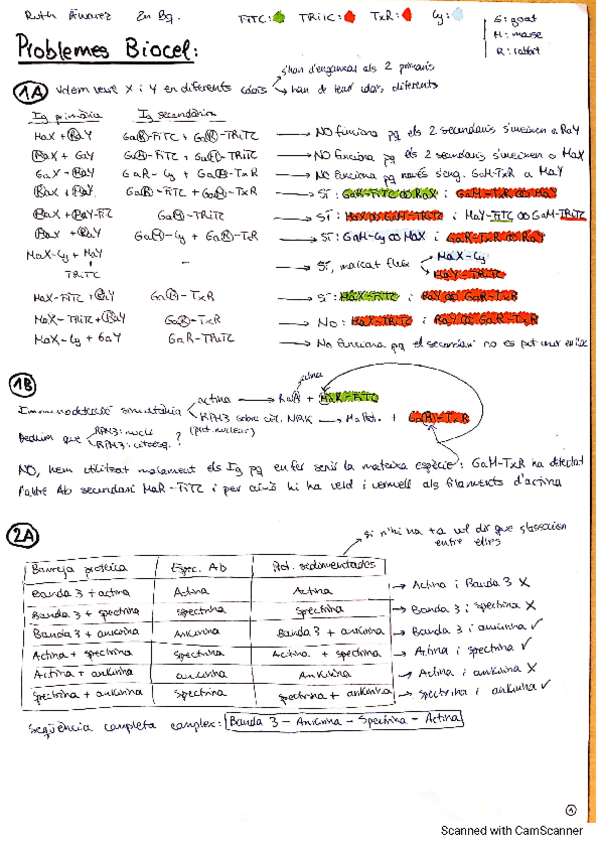 Ruth Álvarez 2n Bq. FiTC: TRiTC: TxR: Cy: G: goat
M: mouse
R: rabbit
Problemes Biocel:
1A Volem veure X i Y en diferents colors s'han d'enganxar els 2 primaris
han de tenir colors diferents
Ig primària Ig secundària
MaX + RaY GaR-FiTC + GaR-TRiTC → NO funciona pq els 2 secundaris s'uneixen a RaY
MaX + GaY → NO funciona pq els 2 secundaris s'uneixen a MaX
GaX + MaY GaR-Cy + GaM-TxR → No funciona pq només s'eng. GaM-TxR a MaY
RaX + MaY GaR-FiTC + GaM-TxR → Sí: GaR-FiTC ∞ RaX i GaM-TxR ∞ MaY
MaX + RaY-FiTC GaM-TRiTC → Sí: MaX ∞ GaM-TRiTC i
MaX + RaY GaM-Cy + GaR-TxR → Sí: GaM-Cy ∞ MaX i GaR-TxR ∞ RaY
MaX-Cy + MaY - → Sí, marcat MaX-Cy
TRiTC MaY-TRiTC
MaX-FiTC + RaY GaR-TxR → Sí: MaX-FiTC i RaY ∞ GaR-TxR
MaX-TRiTC + RaY GaR-TxR → No: MaX-TRiTC i RaY ∞ GaR-TxR
MaX-Cy + GaY GaR-TRiTC → No funciona pq el secundari no es pot unir enlloc
1B actina
Immunodetecció simultània actina → RaA + MaR-FiTC
RPM3 sobre cèl. NRK → MaPot. + GaM-TxR
(prot. nuclear)
Deduïm que RPM3: nucli
RPM3: citoesq. ?
NO, hem utilitzat malament els Ig pq en fer servir la mateixa espècie: GaM-TxR ha detectat
l'altre Ab secundari MaR-FiTC i per això hi ha verd i vermell als filaments d'actina
2A si n'hi ha + a vol dir que s'associen
entre elles
Barreja proteica Espec. AB Prot. sedimentades
Banda 3 + actina Actina Actina → Actina i Banda 3 X
Banda 3 + spectrina Spectrina Spectrina → Banda 3 i spectrina X
Banda 3 + ankirina Ankirina Banda 3 + ankirina → Banda 3 i ankirina ✓
Actina + spectrina Spectrina Actina + spectrina → Actina i spectrina ✓
Actina + ankirina ankirina Ankirina → Actina i ankirina X
Spectrina + ankirina Spectrina spectrina + ankirina → spectrina i ankirina ✓
Seqüència completa complex: Banda 3 - Ankirina - Spectrina - Actina
1
Scanned with CamScanner